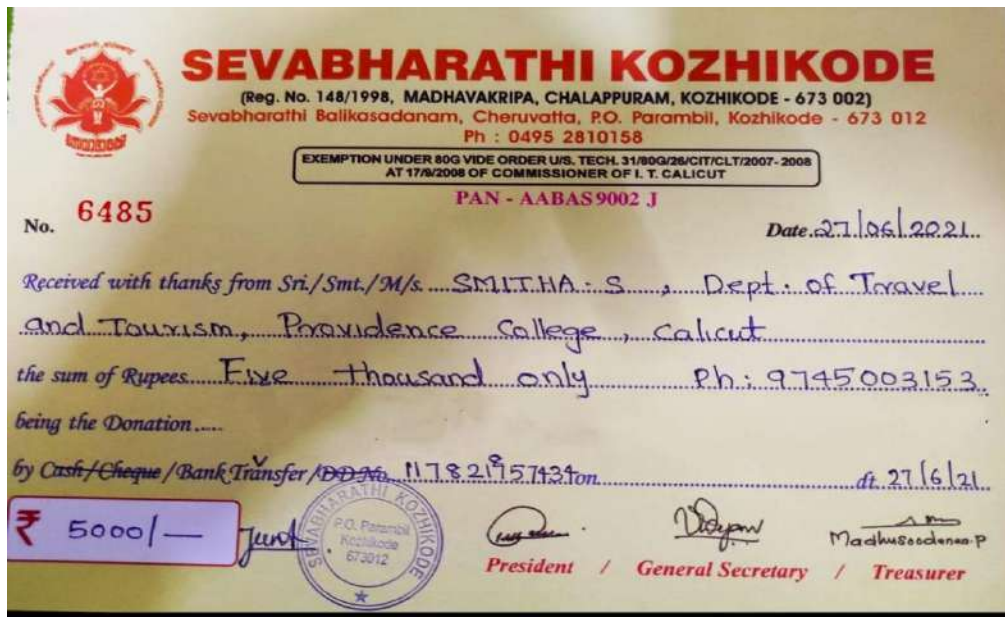 SEVABHARATHI KOZHIKODE
(Reg. No. 148/1998, MADHAVAKRIPA, CHALAPPURAM, KOZHIKODE - 673 002)
Sevabharathi Balikasadanam, Cheruvatta, P.O. Parambil, Kozhikode - 673 012
Ph : 0495 2810158
EXEMPTION UNDER 80G VIDE ORDER U/S. TECH. 31/80G/26/CIT/CLT/2007-2008
AT 17/9/2008 OF COMMISSIONER OF I. T. CALICUT
PAN - AABAS 9002 J
No. 6485
Date 27/06/2021
Received with thanks from Sri./Smt./M/s. SMITHA. S, Dept. of Travel
and Tourism, Providence College, Calicut
the sum of Rupees Five thousand only Ph: 9745003153
being the Donation.....
by Cash/Cheque/Bank Transfer/DD No. on dt 27/6/21
₹ 5000/-
SEVABHARATHI KOZHIKODE
P.O. Parambil
Kozhikode
673012
Madhusoodanan.P
President / General Secretary / Treasurer